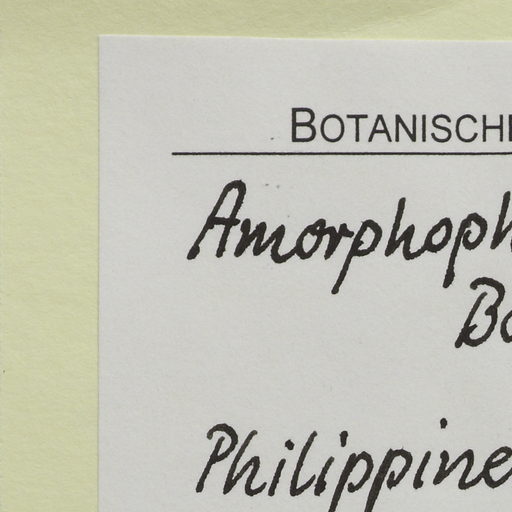 BOTANISCH
Amorphoph
Bo
Philippine